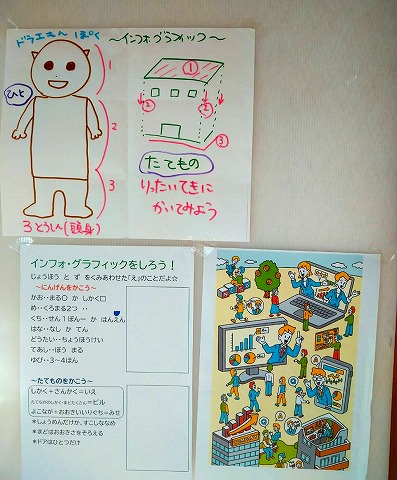 ドラえもん ぽく
～インフォ・グラフィック～
1
ひと
2
3
3とうしん(頭身)
①
②
②
③
たてもの
りったいてきに
かいてみよう
インフォ・グラフィックをしろう！
じょうほう と ず をくみあわせた「え」のことだよ☆
～にんげんをかこう～
かお‥まる〇 か しかく□
め‥くろまる2つ ‥
くち‥せん１ぽんー か はんえん
はな‥なし か てん
どうたい‥ちょうほうけい
てあし‥ぼう まる
ゆび‥3～4ほん
～たてものをかこう～
しかく＋さんかく＝いえ
たてながのしかく・まどたくさん＝ビル
よこなが＋おおきいいりぐち＝みせ
＊しょうめんだけか、すこしななめ
＊まどはおおきさをそろえる
＊ドアはひとつだけ